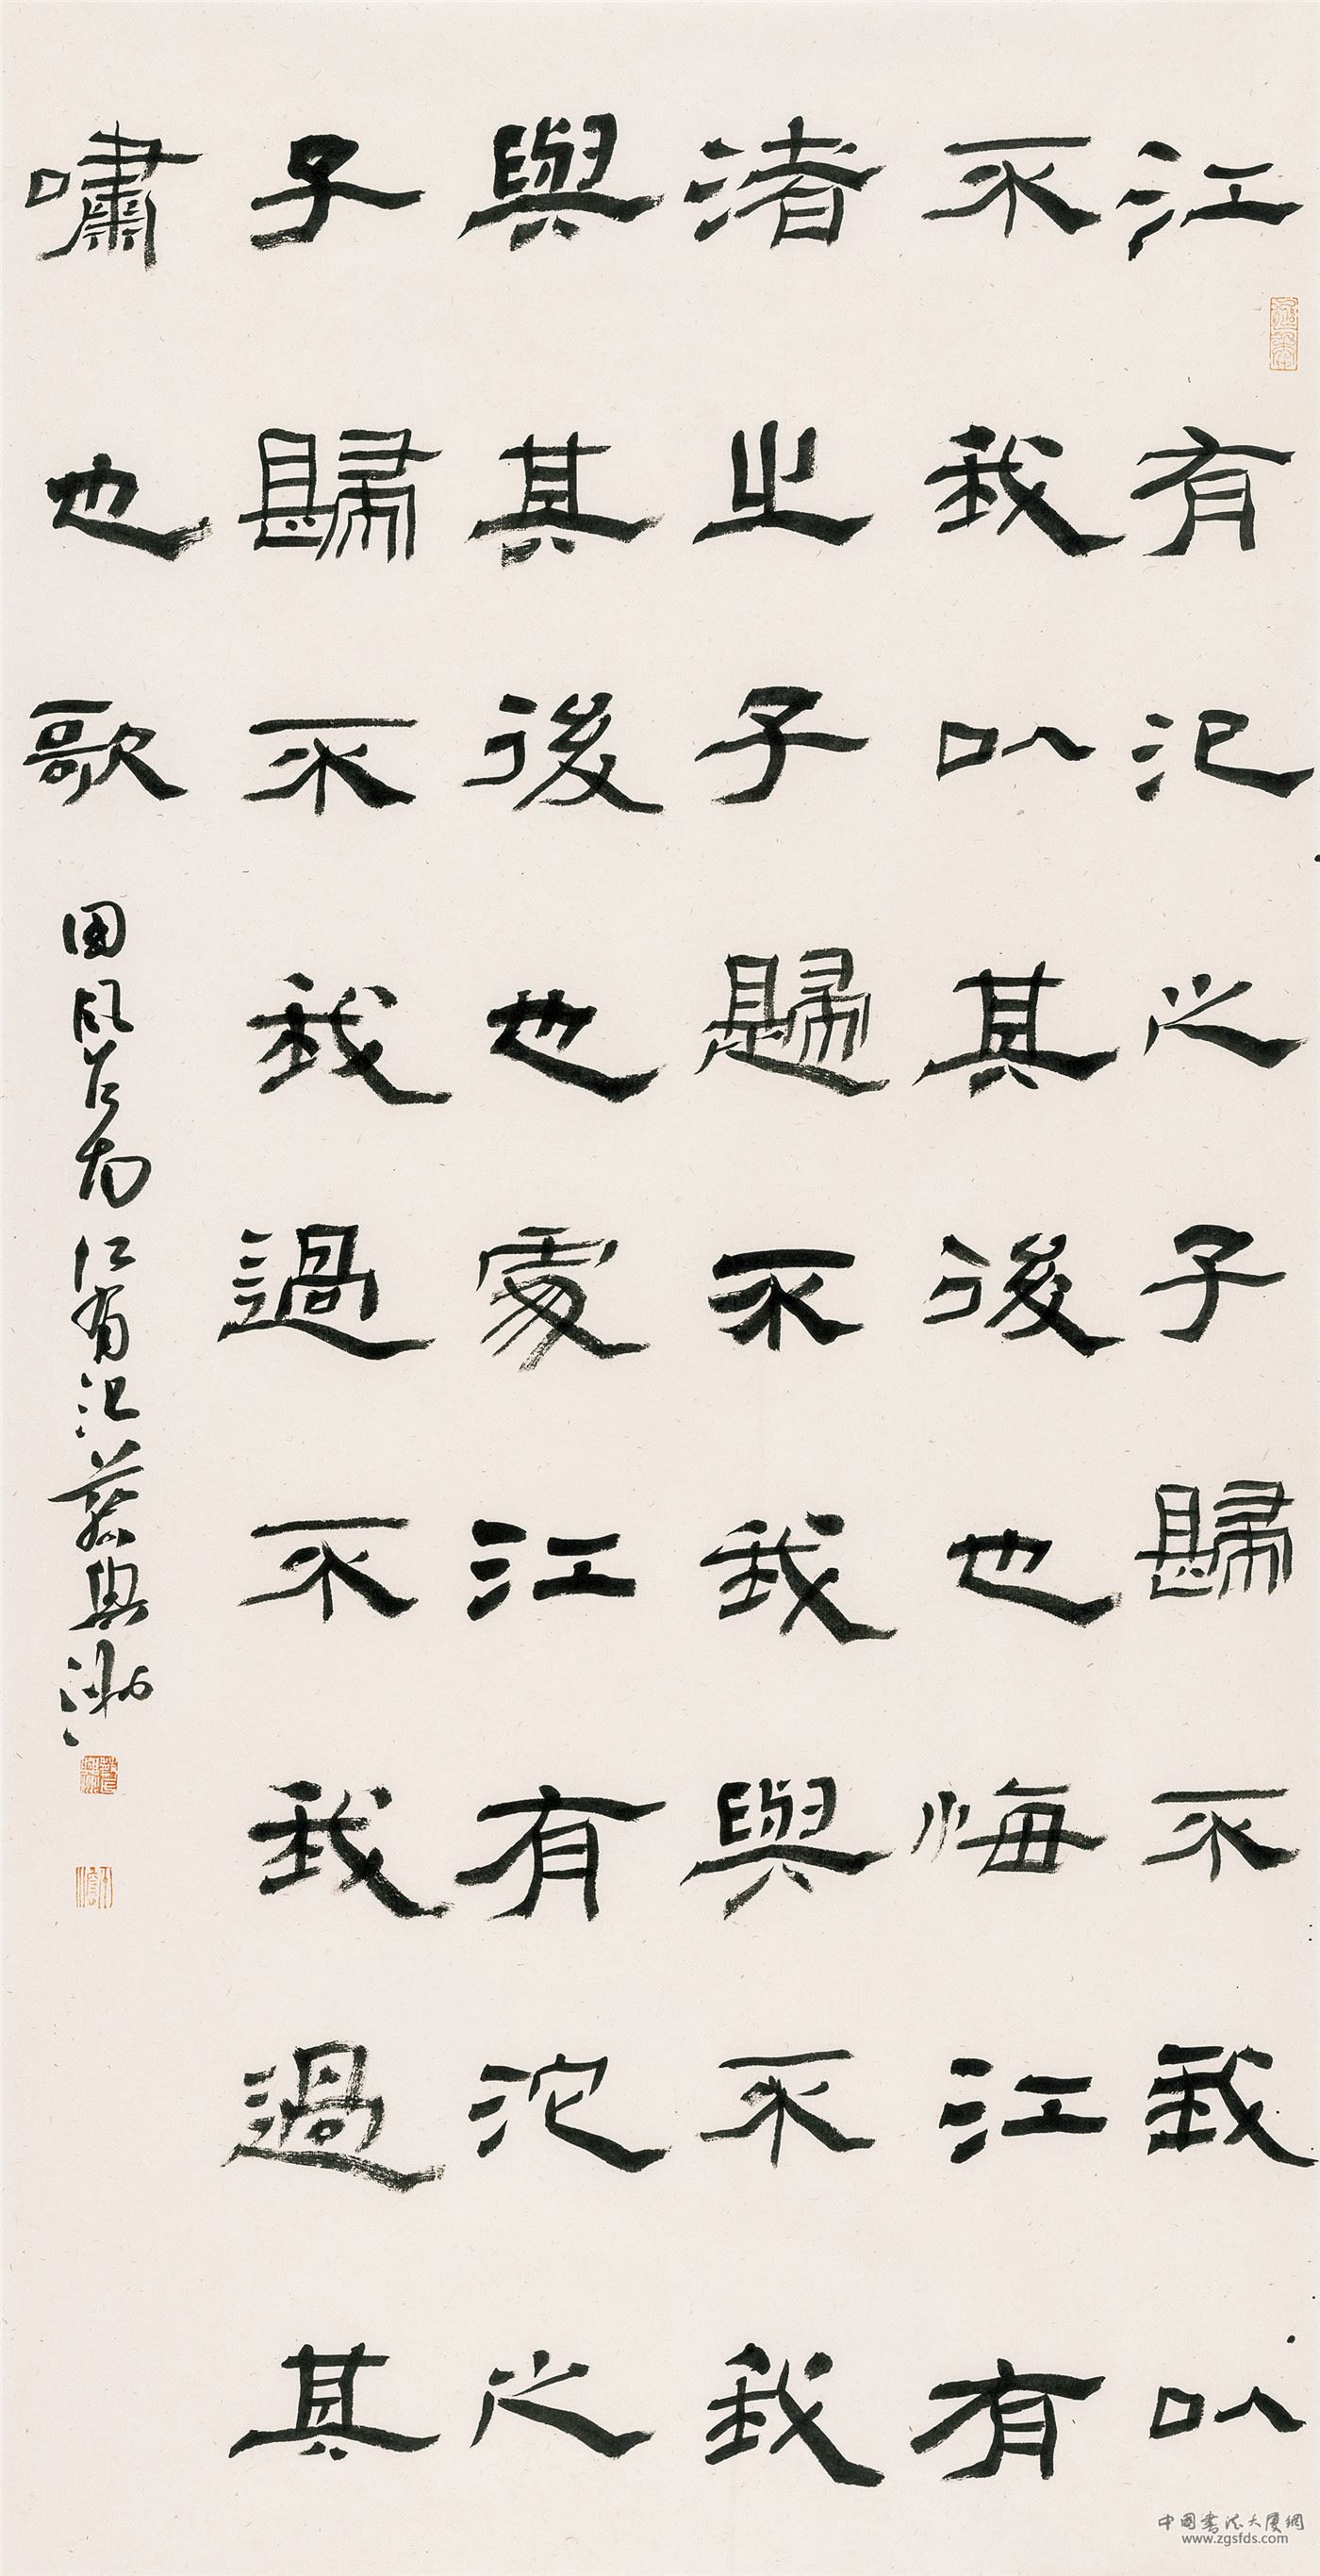 江有汜之子歸不我以
不我以其後也悔江有
渚之子歸不我與不我
與其後也處江有沱之
子歸不我過不我過其
嘯也歌
国风召南江有汜
中国書法大厦網
www.zgsfds.com